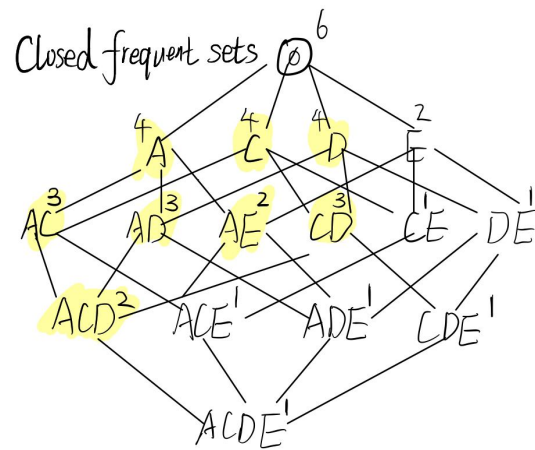 Closed frequent sets ∅ 6
4 A 4 C 4 D 2 E
AC 3 AD 3 AE 2 CD 3 CE 1 DE 1
ACD 2 ACE 1 ADE 1 CDE 1
ACDE 1